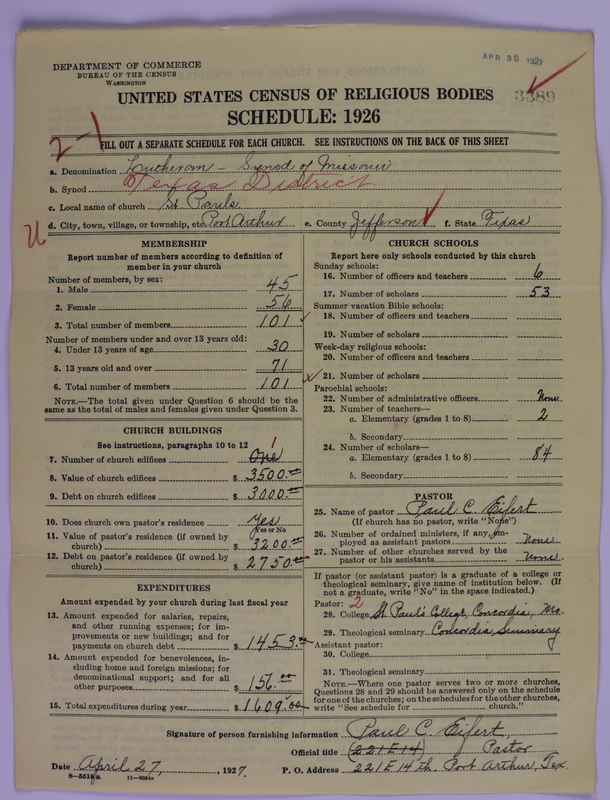 APR 30 1927
DEPARTMENT OF COMMERCE
BUREAU OF THE CENSUS
WASHINGTON
UNITED STATES CENSUS OF RELIGIOUS BODIES
3389
SCHEDULE: 1926
2-1
FILL OUT A SEPARATE SCHEDULE FOR EACH CHURCH. SEE INSTRUCTIONS ON THE BACK OF THIS SHEET
a. Denomination Lutheran - Synod of Missouri
b. Synod Texas District
c. Local name of church St. Pauls
d. City, town, village, or township, etc. Port Arthur e. County Jefferson f. State Texas
U
MEMBERSHIP
Report number of members according to definition of
member in your church
Number of members, by sex:
1. Male 45
2. Female 56
3. Total number of members 101
Number of members under and over 13 years old:
4. Under 13 years of age 30
5. 13 years old and over 71
6. Total number of members 101
NOTE.—The total given under Question 6 should be the
same as the total of males and females given under Question 3.
CHURCH BUILDINGS
See instructions, paragraphs 10 to 12
7. Number of church edifices One 1
8. Value of church edifices $ 3500.00
9. Debt on church edifices $ 3000.00
10. Does church own pastor's residence Yes
(Yes or No
11. Value of pastor's residence (if owned by
church) $ 3200.00
12. Debt on pastor's residence (if owned by
church) $ 2750.00
EXPENDITURES
Amount expended by your church during last fiscal year
13. Amount expended for salaries, repairs,
and other running expenses; for im-
provements or new buildings; and for
payments on church debt $ 1453.00
14. Amount expended for benevolences, in-
cluding home and foreign missions; for
denominational support; and for all
other purposes $ 156.00
15. Total expenditures during year $ 1609.00
CHURCH SCHOOLS
Report here only schools conducted by this church
Sunday schools:
16. Number of officers and teachers 6
17. Number of scholars 53
Summer vacation Bible schools:
18. Number of officers and teachers
19. Number of scholars
Week-day religious schools:
20. Number of officers and teachers
21. Number of scholars
Parochial schools:
22. Number of administrative officers None
23. Number of teachers—
a. Elementary (grades 1 to 8) 2
b. Secondary
24. Number of scholars—
a. Elementary (grades 1 to 8) 84
b. Secondary
PASTOR
25. Name of pastor Paul C. Eifert
(If church has no pastor, write "None")
26. Number of ordained ministers, if any, em-
ployed as assistant pastors None
27. Number of other churches served by the
pastor or his assistants None.
If pastor (or assistant pastor) is a graduate of a college or
theological seminary, give name of institution below. (If
not a graduate, write "No" in the space indicated.)
Pastor: 2
28. College St. Paul's College, Concordia, Mo.
29. Theological seminary Concordia Seminary
Assistant pastor:
30. College
31. Theological seminary
NOTE.—Where one pastor serves two or more churches,
Questions 28 and 29 should be answered only on the schedule
for one of the churches; on the schedules for the other churches,
write "See schedule for church."
Signature of person furnishing information Paul C. Eifert
Official title (221 E 14) Pastor
Date April 27, 1927. P. O. Address 221 E 14th Port Arthur, Tex.